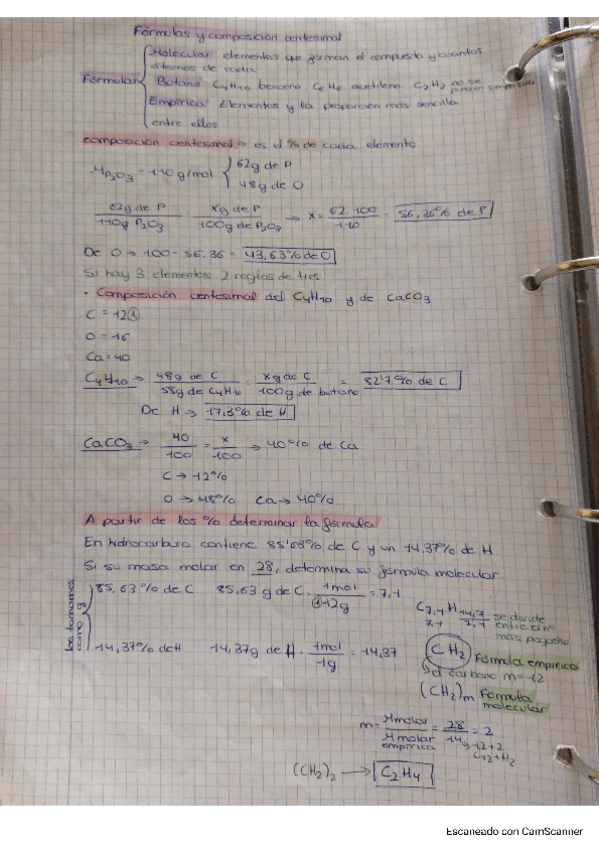 Fórmulas y composición centesimal
Molecular: elementos que forman el compuesto y cuantos
átomos de cada
Fórmulas Butano C4H10 benceno C6H6 acetileno C2H2 no se pueden simplificar
Empírica: Elementos y la proporción más sencilla
entre ellos
composición centesimal → es el % de cada elemento
MP2O3 = 110 g/mol { 62g de P
48g de O
62g de P / 110g P2O3 = xg de P / 100g de P2O3 → x = 62·100 / 110 = 56,36% de P
De O → 100 - 56,36 = 43,63% de O
Si hay 3 elementos 2 reglas de tres
· Composición centesimal del C4H10 y de CaCO3
C = 12
O = 16
Ca = 40
C4H10 → 48g de C / 58g de C4H10 = xg de C / 100g de butano = 82'7% de C
De H → 17,3% de H
CaCO3 → 40 / 100 = x / 100 → 40% de Ca
C → 12%
O → 48% Ca → 40%
A partir de los % determinar la fórmula
En hidrocarburo contiene 85'63% de C y un 14,37% de H
Si su masa molar en 28, determina su fórmula molecular
los tomamos como g
85,63% de C 85,63 g de C · 1mol / 12g = 7,1
C7,1 / 7,1 H14,7 / 7,1 se divide entre el nº más pequeño
14,37% de H 14,37g de H · 1mol / 1g = 14,37
CH2 Fórmula empírica
el carbono m=12
(CH2)m Fórmula molecular
m = Mmolar / Mmolar empírica = 28 / 14 = 2
12+2
C12+H2
(CH2)2 → C2H4
Escaneado con CamScanner